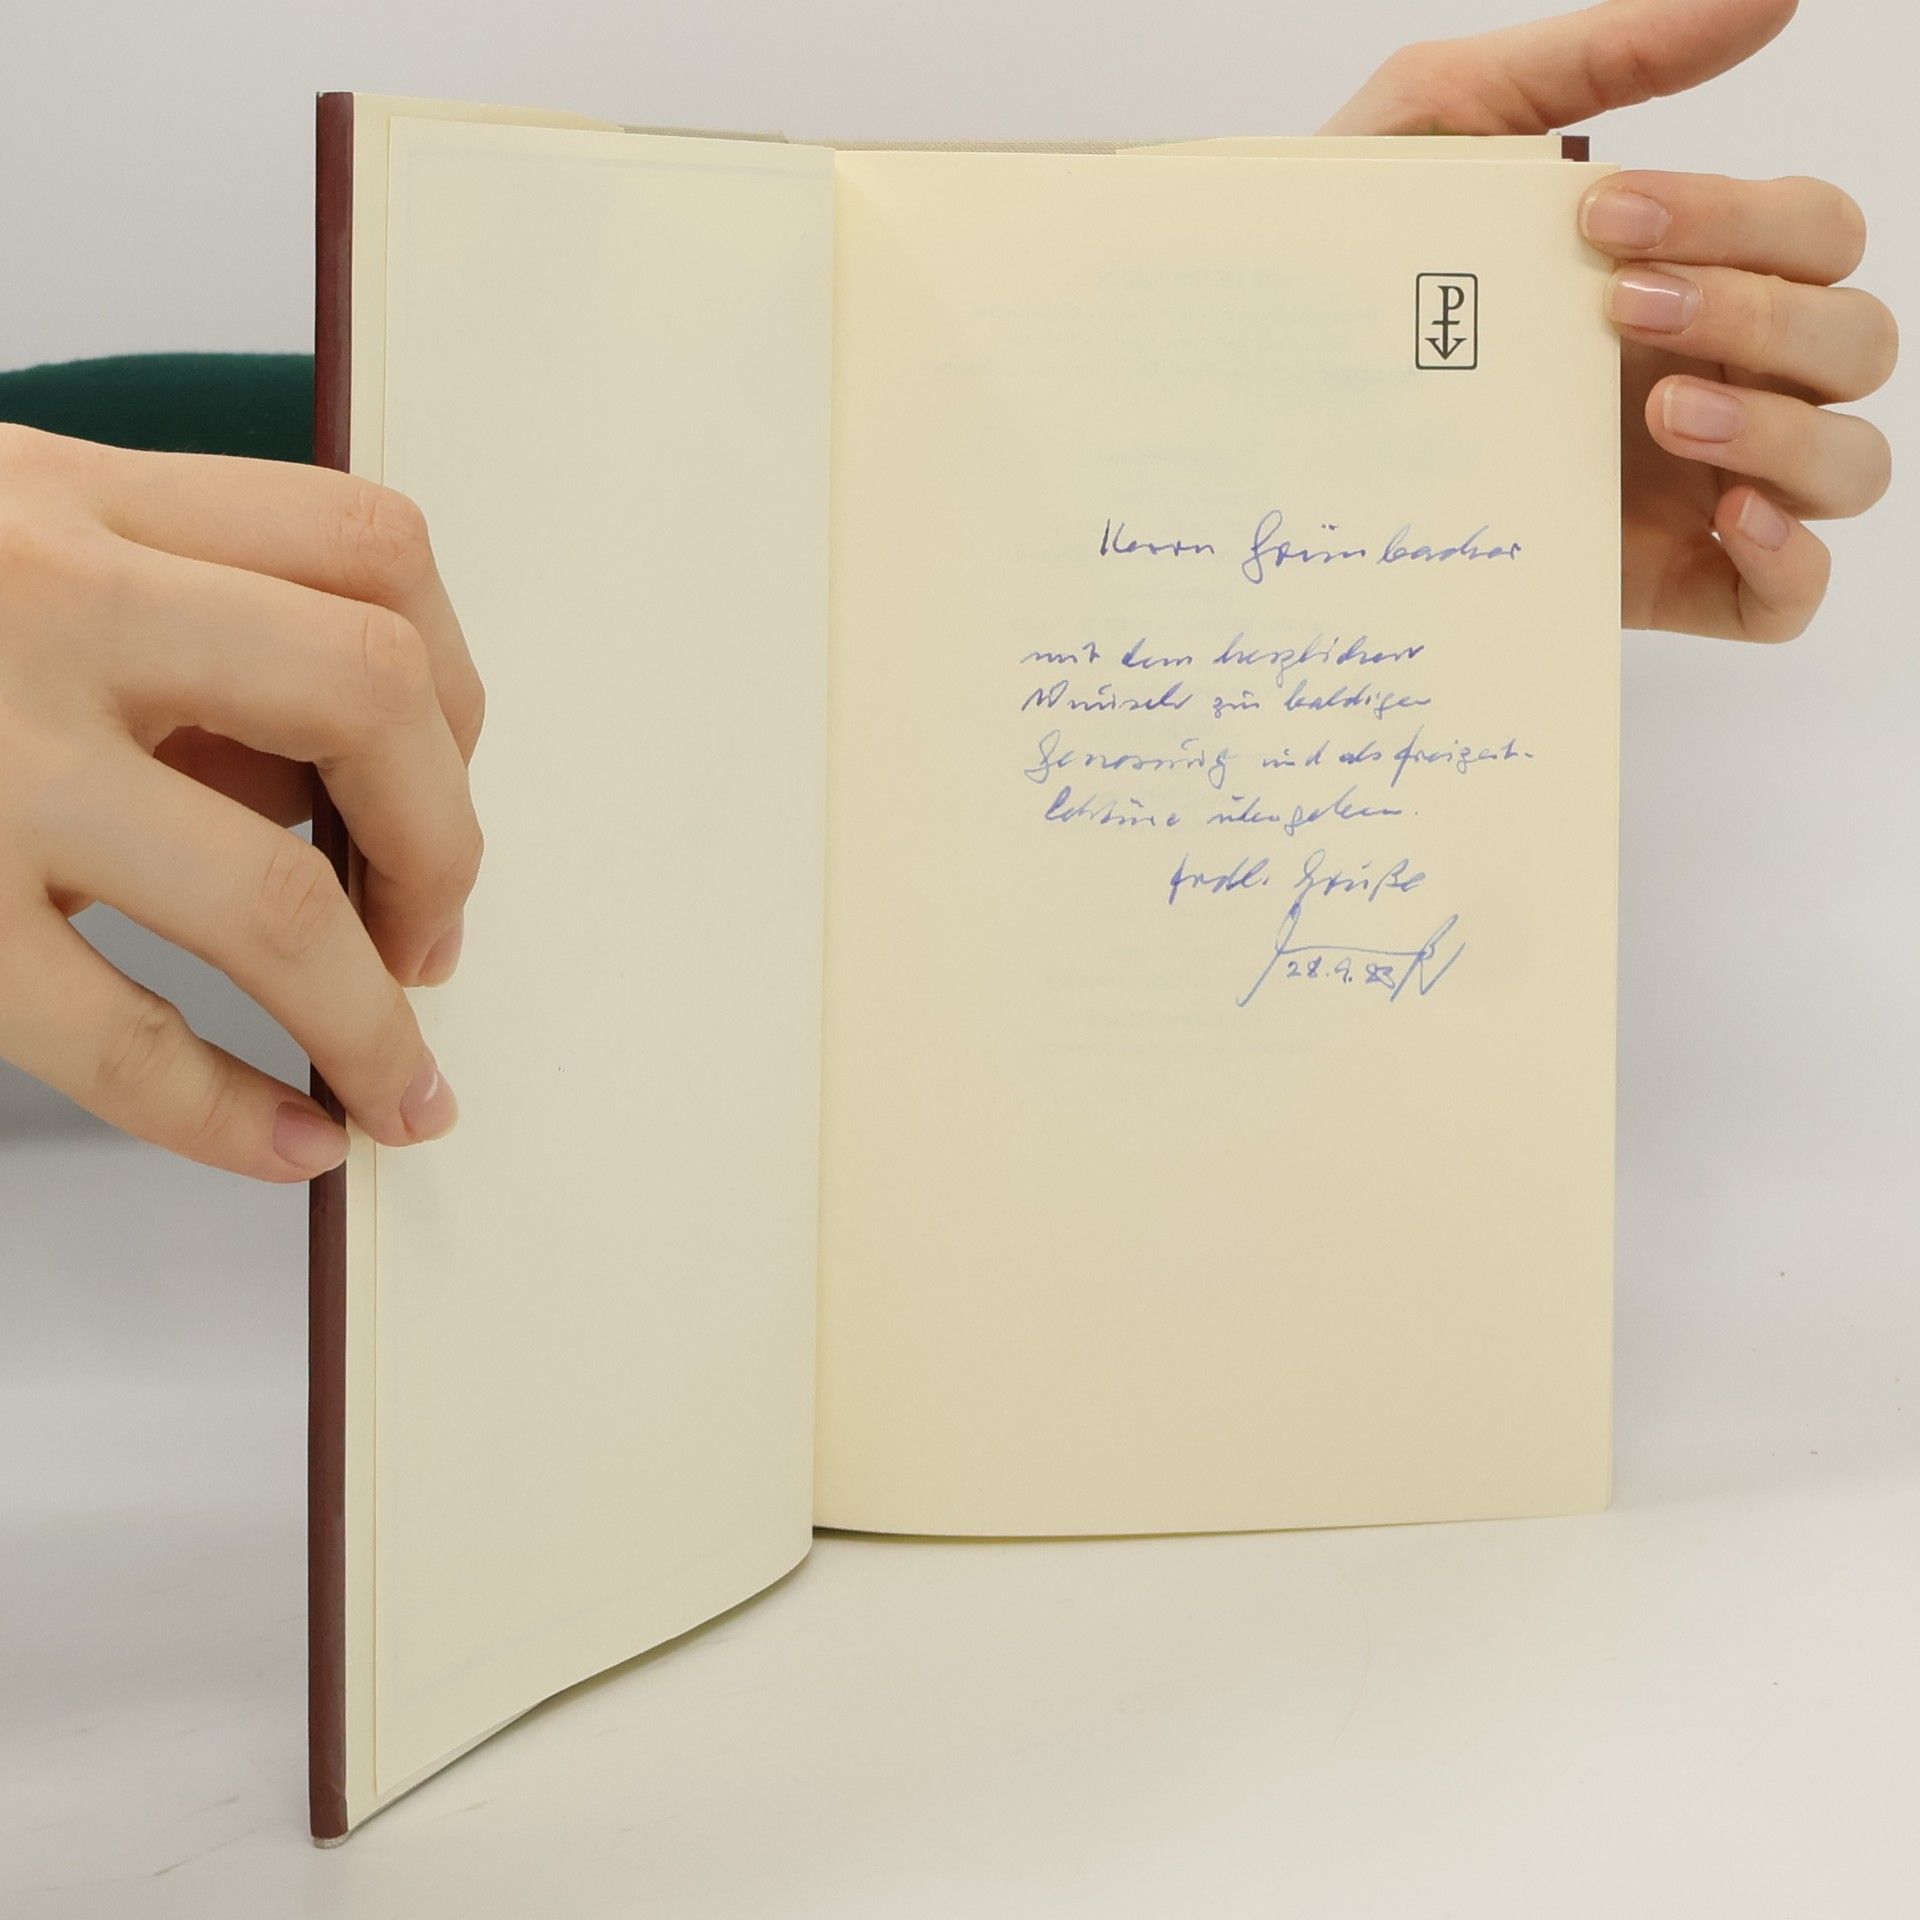 P
Herrn Grünbacher
mit dem herzlichen
Wunsch zur baldigen
Genesung und als Freizeit-
lektüre übergeben.
frdl. Grüße
28.9.83